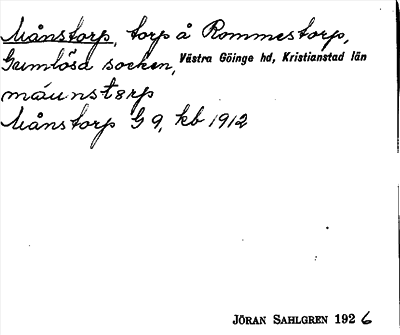 Månstorp, torp å Rommestorp,
Gumlösa socken, Västra Göinge hd, Kristianstad län
máunstɜrp
Månstorp G 9, kb 1912
JÖRAN SAHLGREN 1926